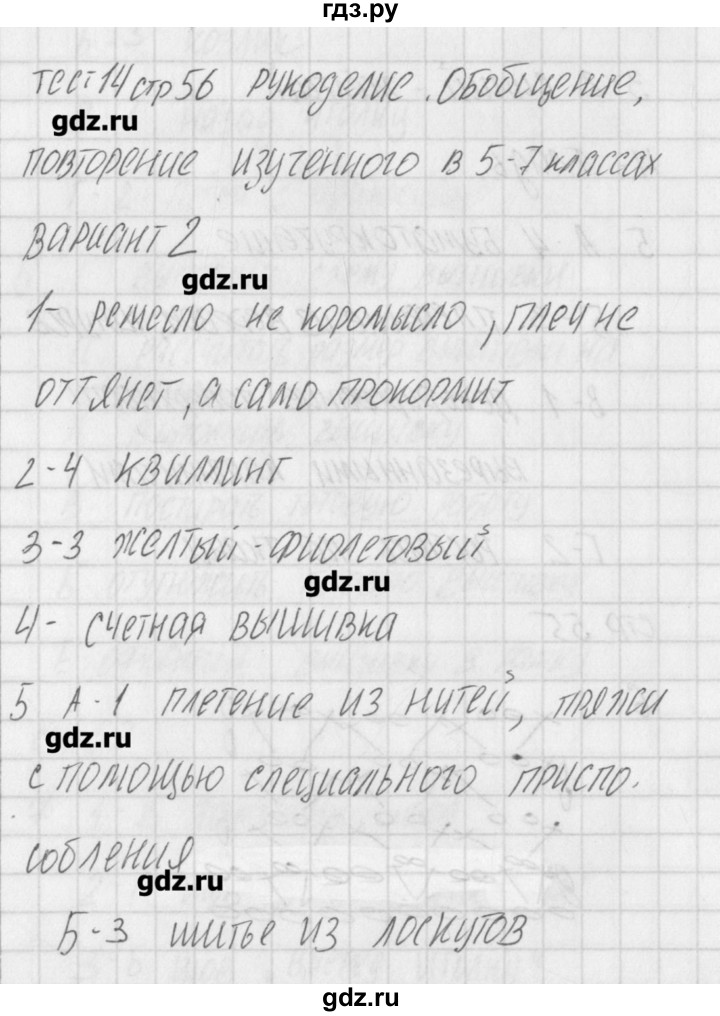 гдз.ру
тест 14 стр 56 рукоделие. Обобщение,
gdz.ru
повторение изученного в 5-7 классах
вариант 2
gdz.ru
1- ремесло не коромысло, плеч не
оттянет, а само прокормит
2-4 квиллинг
3-3 желтый-фиолетовый
gdz.ru
4- счетная вышивка
5 А-1 плетение из нитей, пряжи
gdz.ru
с помощью специального приспо-
собления
gdz.ru
Б-3 шитье из лоскутов
gdz.ru